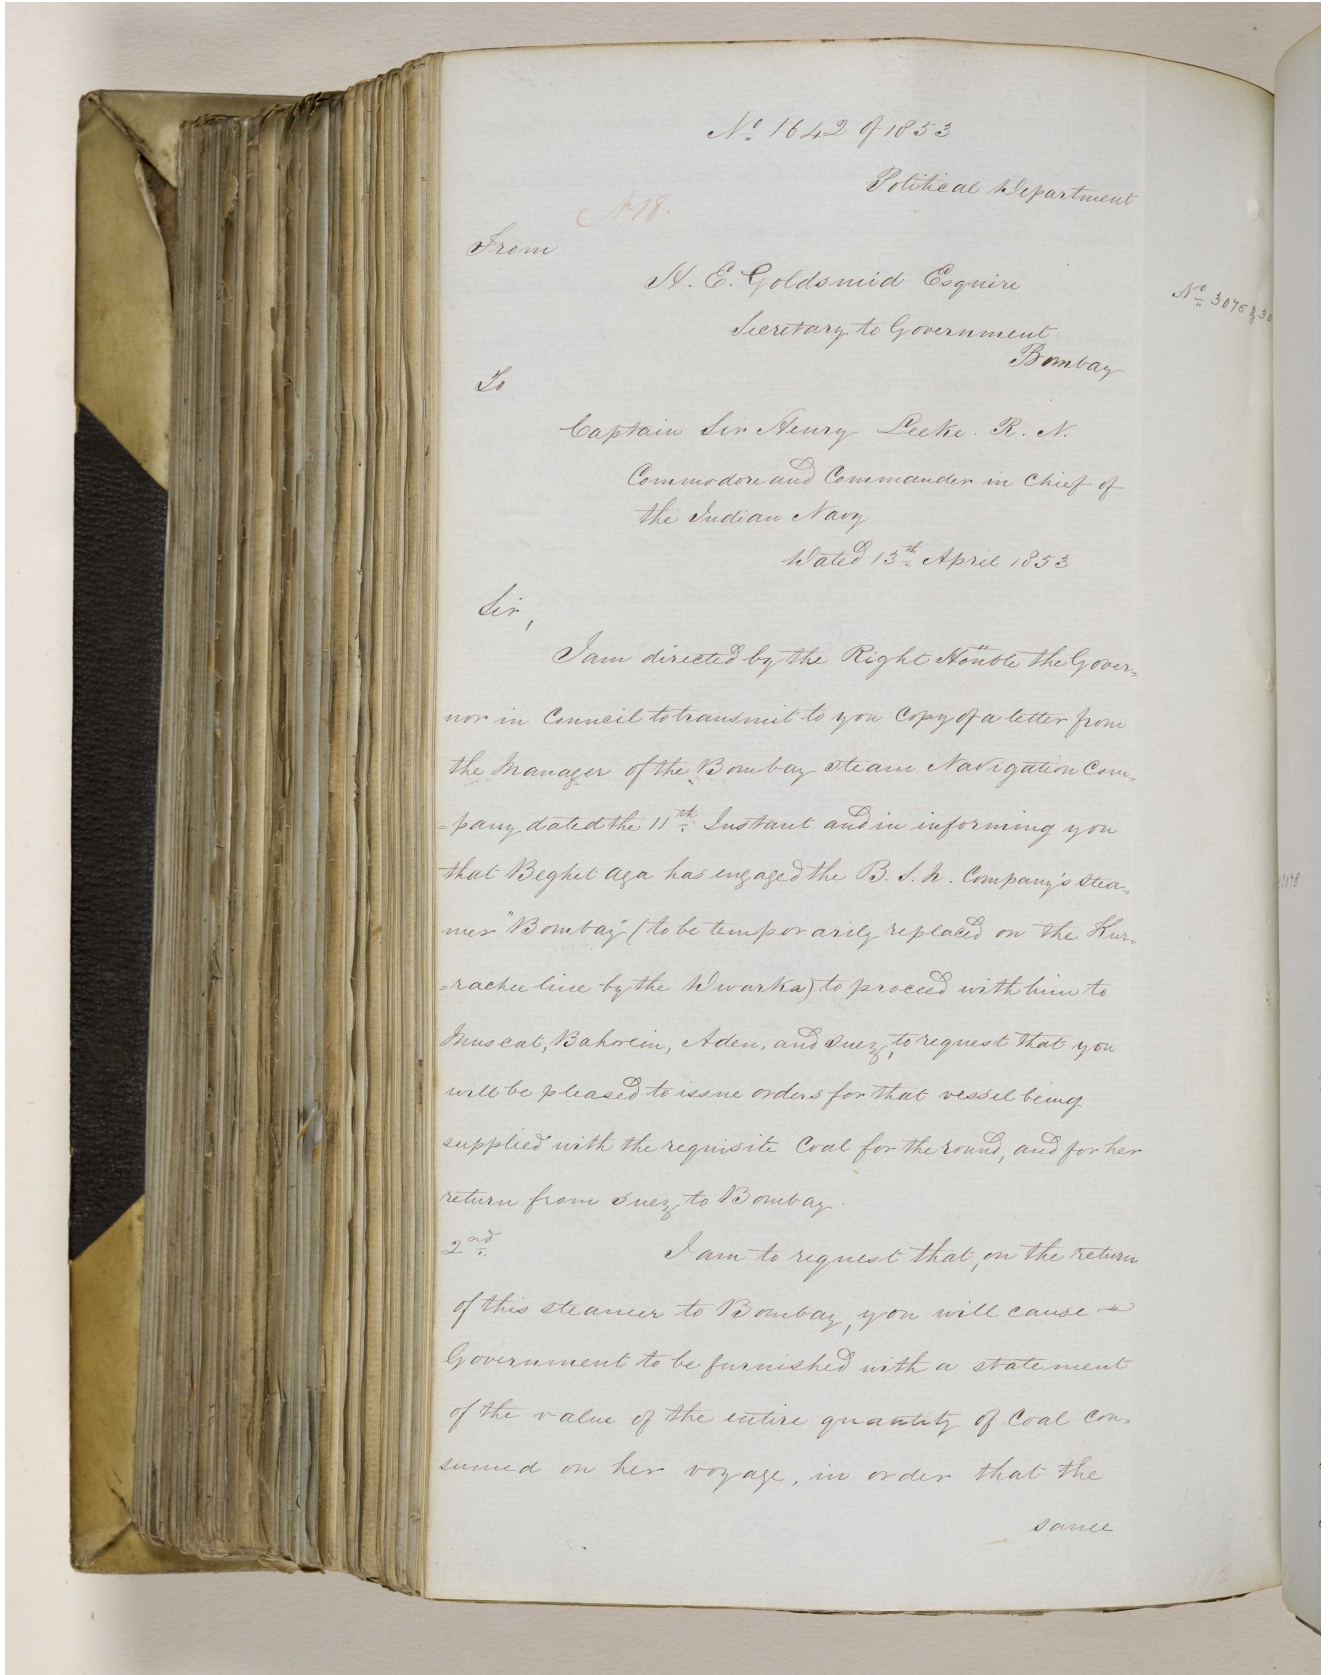 No. 1642 of 1853
Political Department
No 18.
From
H. E. Goldsmid Esquire
Secretary to Government
Bombay
No. 3076
To
Captain Sir Henry Leeke. R. N.
Commodore and Commander in Chief of
the Indian Navy
Dated 13th. April 1853
Sir,
I am directed by the Right Honble the Gover=
nor in Council to transmit to you Copy of a letter from
the Manager of the Bombay Steam Navigation Com=
=pany dated the 11th. Instant and in informing you
that Beghet Aga has engaged the B. S. N. Company's Stea=
mer "Bombay" (to be temporarily replaced on the Kur=
=rachee line by the Dwarka) to proceed with him to
Muscat, Bahrein, Aden, and Suez, to request that you
will be pleased to issue orders for that vessel being
supplied with the requisite Coal for the round, and for her
return from Suez to Bombay.
2nd. I am to request that, on the return
of this steamer to Bombay, you will cause
Government to be furnished with a statement
of the value of the entire quantity of Coal con=
sumed on her voyage, in order that the
same